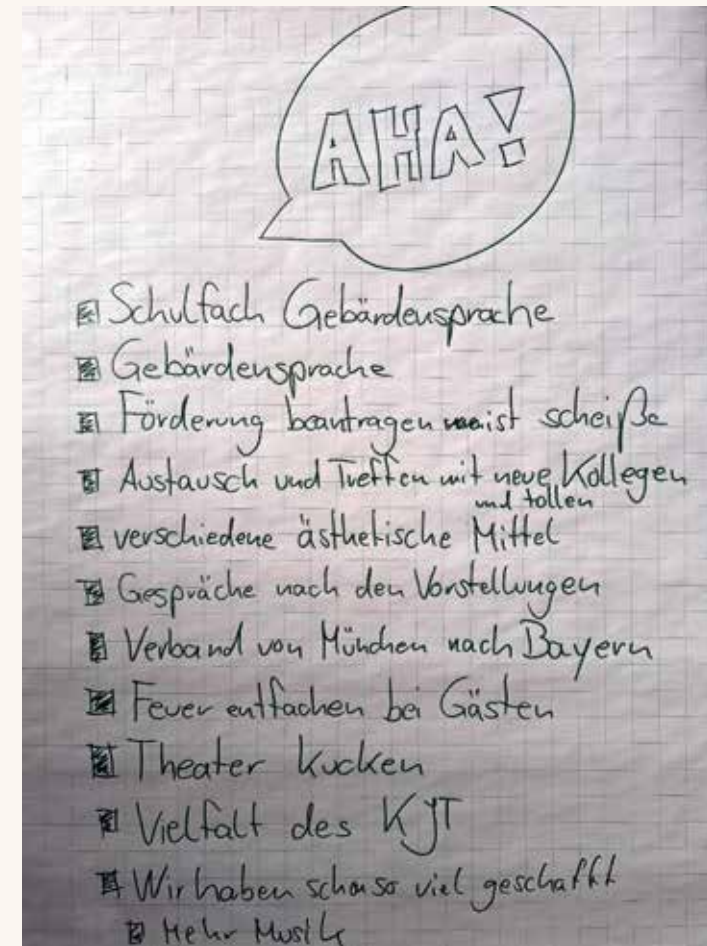 AHA!
Schulfach Gebärdensprache
Gebärdensprache
Förderung beantragen ist scheiße
Austausch und Treffen mit neue Kollegen
und tollen
verschiedene ästhetische Mittel
Gespräche nach den Vorstellungen
Verband von München nach Bayern
Feuer entfachen bei Gästen
Theater kucken
Vielfalt des KJT
Wir haben schon so viel geschafft
Mehr Musik